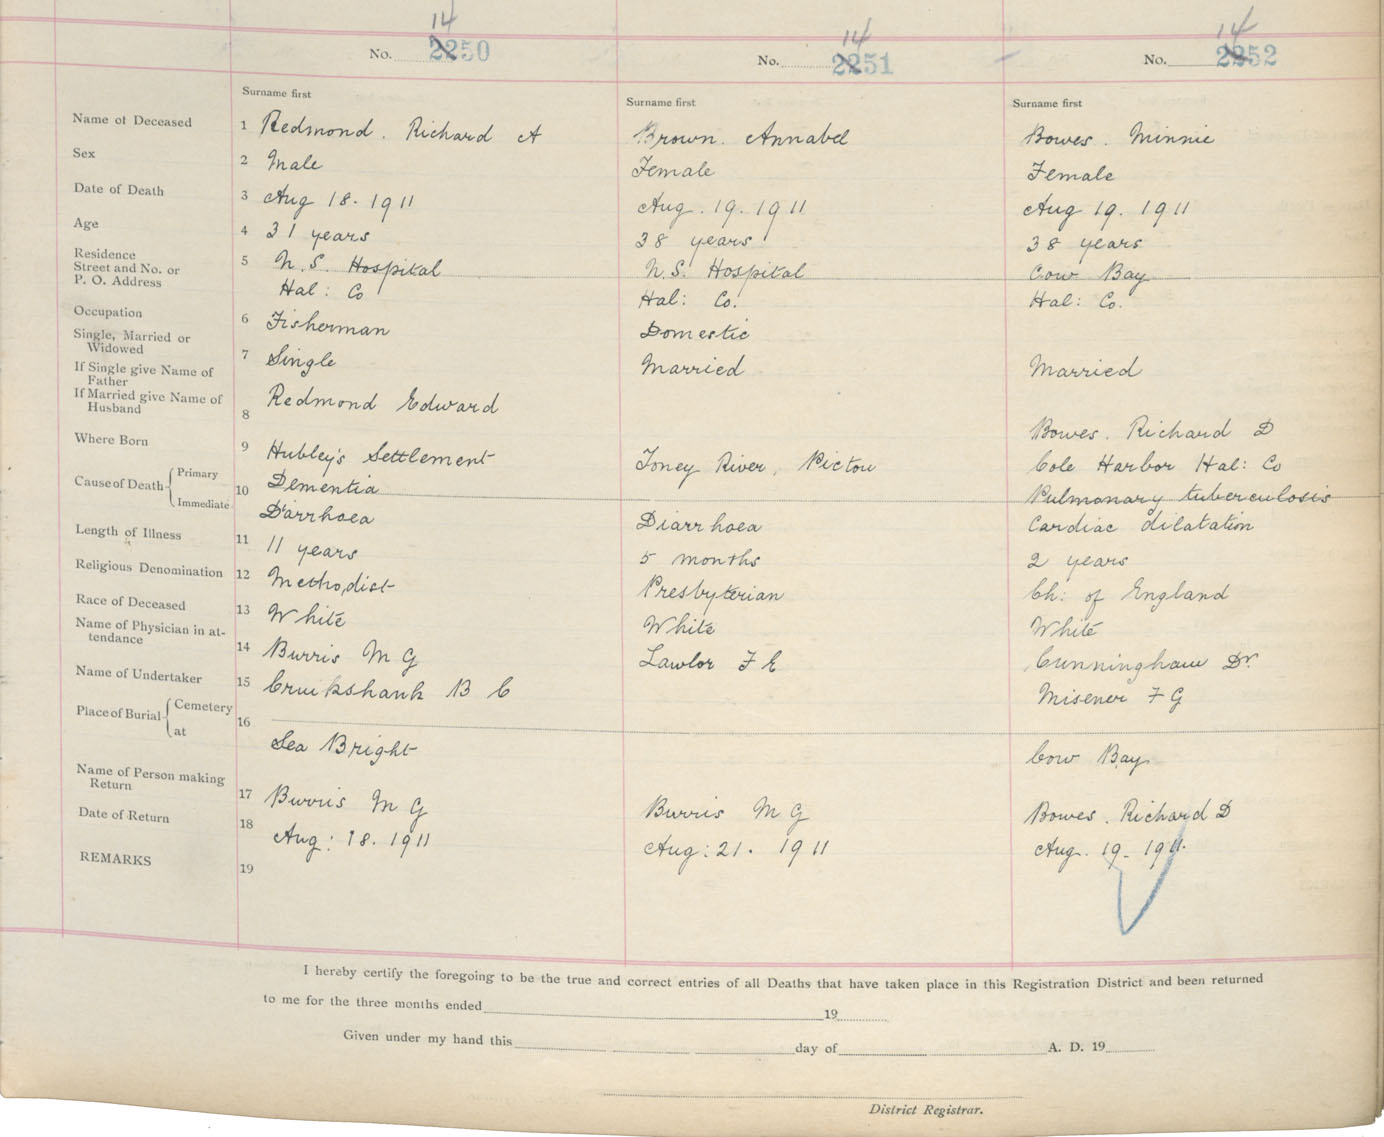 14 14 14
No. 2250 No. 2251 No. 2252
Surname first Surname first Surname first
Name of Deceased 1 Redmond. Richard A Brown. Annabel Bowes. Minnie
Sex 2 Male Female Female
Date of Death 3 Aug 18. 1911 Aug. 19. 1911 Aug 19. 1911
Age 4 31 years 38 years 38 years
Residence
Street and No. or 5 N.S. Hospital N.S. Hospital Cow Bay
P. O. Address Hal: Co Hal: Co. Hal: Co.
Occupation 6 Fisherman Domestic
Single, Married or
Widowed 7 Single Married Married
If Single give Name of
Father
If Married give Name of Redmond Edward
Husband 8 Bowes. Richard D
Where Born 9 Hubley's Settlement Toney River, Pictou Cole Harbor Hal: Co
Cause of Death Primary 10 Dementia Pulmonary tuberculosis
Immediate Diarrhoea Diarrhoea Cardiac dilatation
Length of Illness 11 11 years 5 months 2 years
Religious Denomination 12 Methodist Presbyterian Ch: of England
Race of Deceased 13 White White White
Name of Physician in at-
tendance 14 Burris M G Lawlor F E Cunningham Dr.
Name of Undertaker 15 Cruikshank B C Misener F G
Place of Burial Cemetery 16
at Sea Bright Cow Bay
Name of Person making
Return 17 Burris M G Burris M G Bowes. Richard D
Date of Return 18 Aug: 18. 1911 Aug: 21. 1911 Aug. 19. 1911.
REMARKS 19
I hereby certify the foregoing to be the true and correct entries of all Deaths that have taken place in this Registration District and been returned
to me for the three months ended 19
Given under my hand this day of A. D. 19
District Registrar.